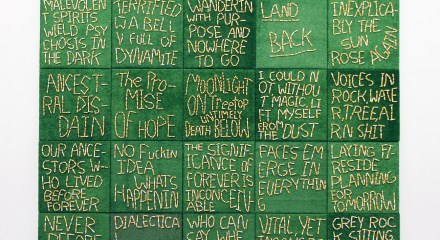 MALEVOLEN
T SPIRITS
WIELD PSY
CHOSIS IN
THE DARK
TERRIFIED
W A BELL
Y FULL OF
DYNAMITE
WANDERIN
WITH PUR-
POSE AND
NOWHERE
TO GO
LAND
BACK
INEXPLICA
BLY THE
SUN
ROSE AGAIN
ANCEST-
RAL DIS-
DAIN
The PRO-
MISE
OF HOPE
MOONLIGHT
ON TREETOP
UNTIMELY
DEATH BELOW
I COULD N
OT WITHOU
T MAGIC, LI
FT MYSELF
FROM THE DUST
VOICES IN
ROCK, WATE
R, TREE, AI
R N SHIT
OUR ANCE
STORS W-
HO LIVED
BEFORE
FOREVER
NO FUCKIN
IDEA
WHATS
HAPPENIN
THE SIGNIF-
ICANCE OF
FOREVER IS
INCONCEIV
ABLE
FACES EM
ERGE IN
EVERYTHIN
G
LAYING FI-
RESIDE
PLANNING
FOR
TOMORROW
NEVER
BEFORE
DIALECTICA
WHO CAN
SAY WHE
VITAL, YET
GREY ROC
K SITTING